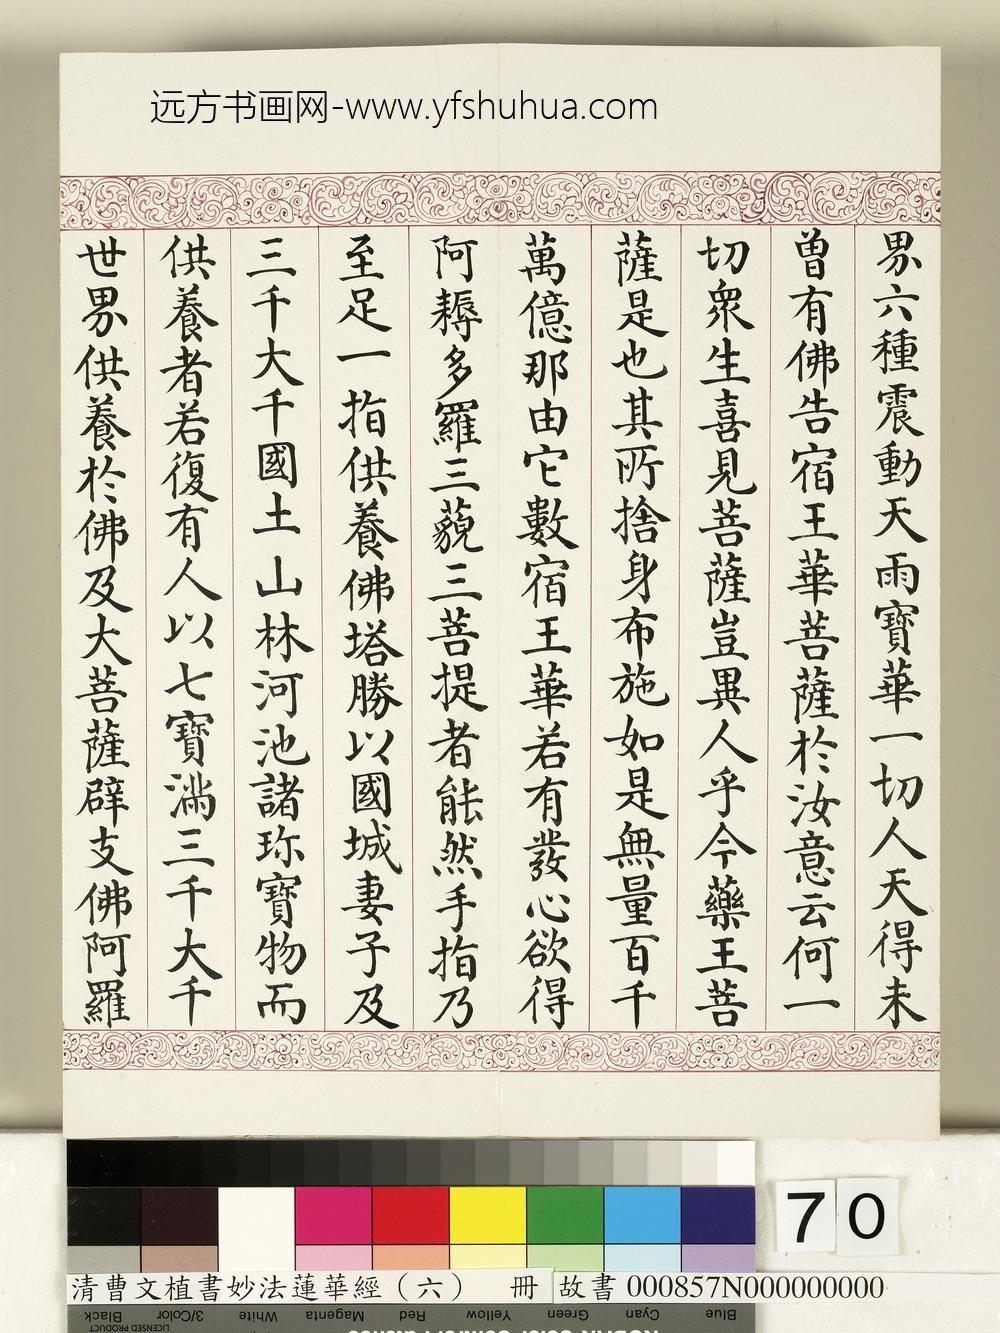 远方书画网-www.yfshuhua.com
界六種震動天雨寶華一切人天得未
曾有佛告宿王華菩薩於汝意云何一
切衆生喜見菩薩豈異人乎今藥王菩
薩是也其所捨身布施如是無量百千
萬億那由它數宿王華若有發心欲得
阿耨多羅三藐三菩提者能然手指乃
至足一指供養佛塔勝以國城妻子及
三千大千國土山林河池諸珎寶物而
供養者若復有人以七寶滿三千大千
世界供養於佛及大菩薩辟支佛阿羅
70
清曹文植書妙法蓮華經（六） 冊
故書 000857N000000000
Black 3/Color White Magenta Red Yellow Green Cyan Blue
LICENSED PRODUCT